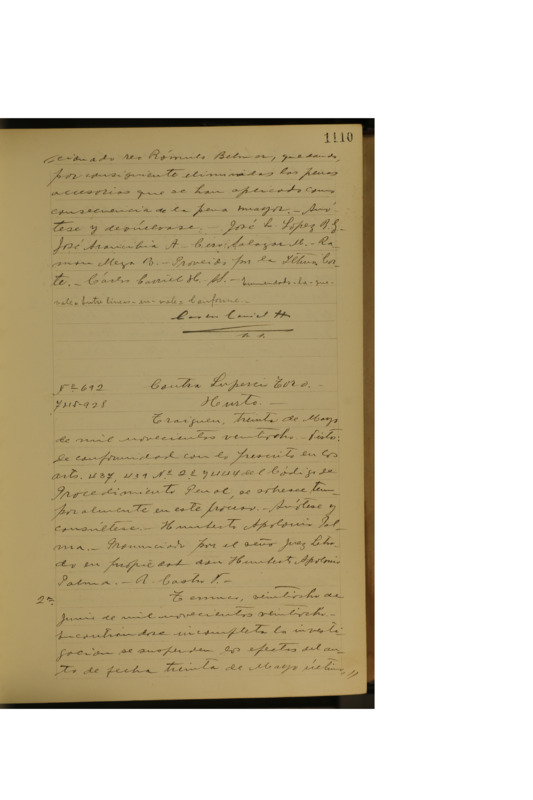 1110
cionado reo Rómulo Belmar, quedando,
por consiguiente eliminadas las penas
accesorias que se han aplicado como
consecuencia de la pena mayor. - Anó-
tese y devuélvase. - José L. López A. G.
José Aravitia A - Cesar Salazar M. - Ra-
mon Meza R. - Proveido por la Iltma. Cor-
te. - Carlos Coniel H. S. - Enmendado - la - que
vale
Conforme. -
Coniel H
Nº 612 Contra Toro. -
7415-928 Hurto. -
Traiguen, treinta de Mayo
de mil novecientos veintiocho. - Vistos:
De conformidad con lo prescrito en los
arts. 437, 439 Nº 2 y 444 del Código de
Procedimiento Penal, se sobresee tem-
poralmente en este proceso. - Anótese y
consúltese. - Humberto Apolonio Pal-
ma. - Pronunciado por el señor Juez Letra-
do en propiedad don Humberto Apolonio
Palma. - A. Castro V. -
2ª Temuco, veintiocho de
Junio de mil novecientos veintiocho. -
Encontrándose incompleta la investi-
gación se suspenden los efectos del au-
to de fecha treinta de Mayo último,